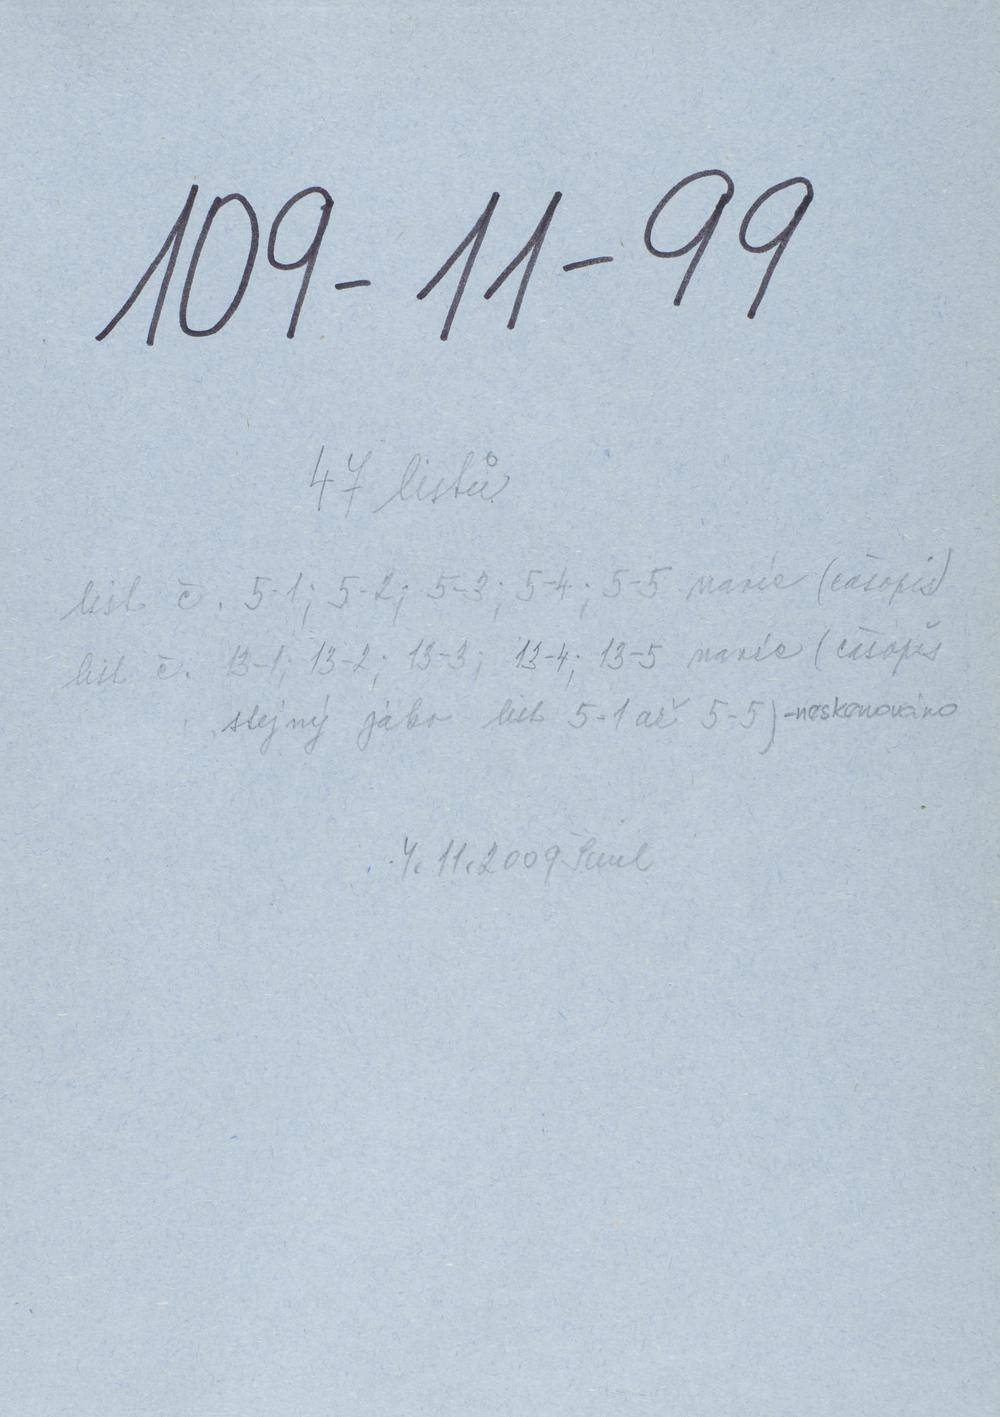 109-11-99
47 listů
list č. 5-1; 5-2; 5-3; 5-4; 5-5 navíc (časopis)
list č. 13-1; 13-2; 13-3; 13-4; 13-5 navíc (časopis
stejný jako list 5-1 až 5-5) -neskenováno
4. 11. 2009